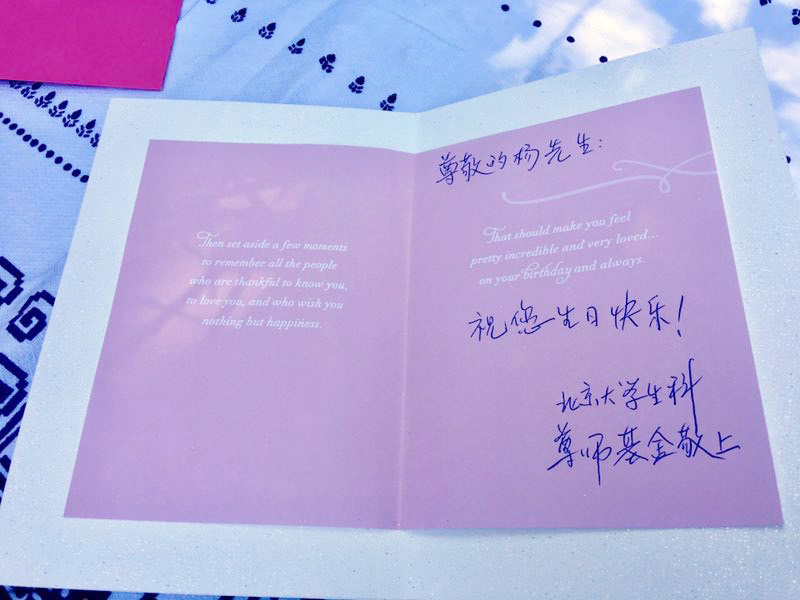 Then set aside a few moments
to remember all the people
who are thankful to know you,
to love you, and who wish you
nothing but happiness.
尊敬的杨先生:
That should make you feel
pretty incredible and very loved...
on your birthday and always.
祝您生日快乐!
北京大学生科
尊师基金敬上